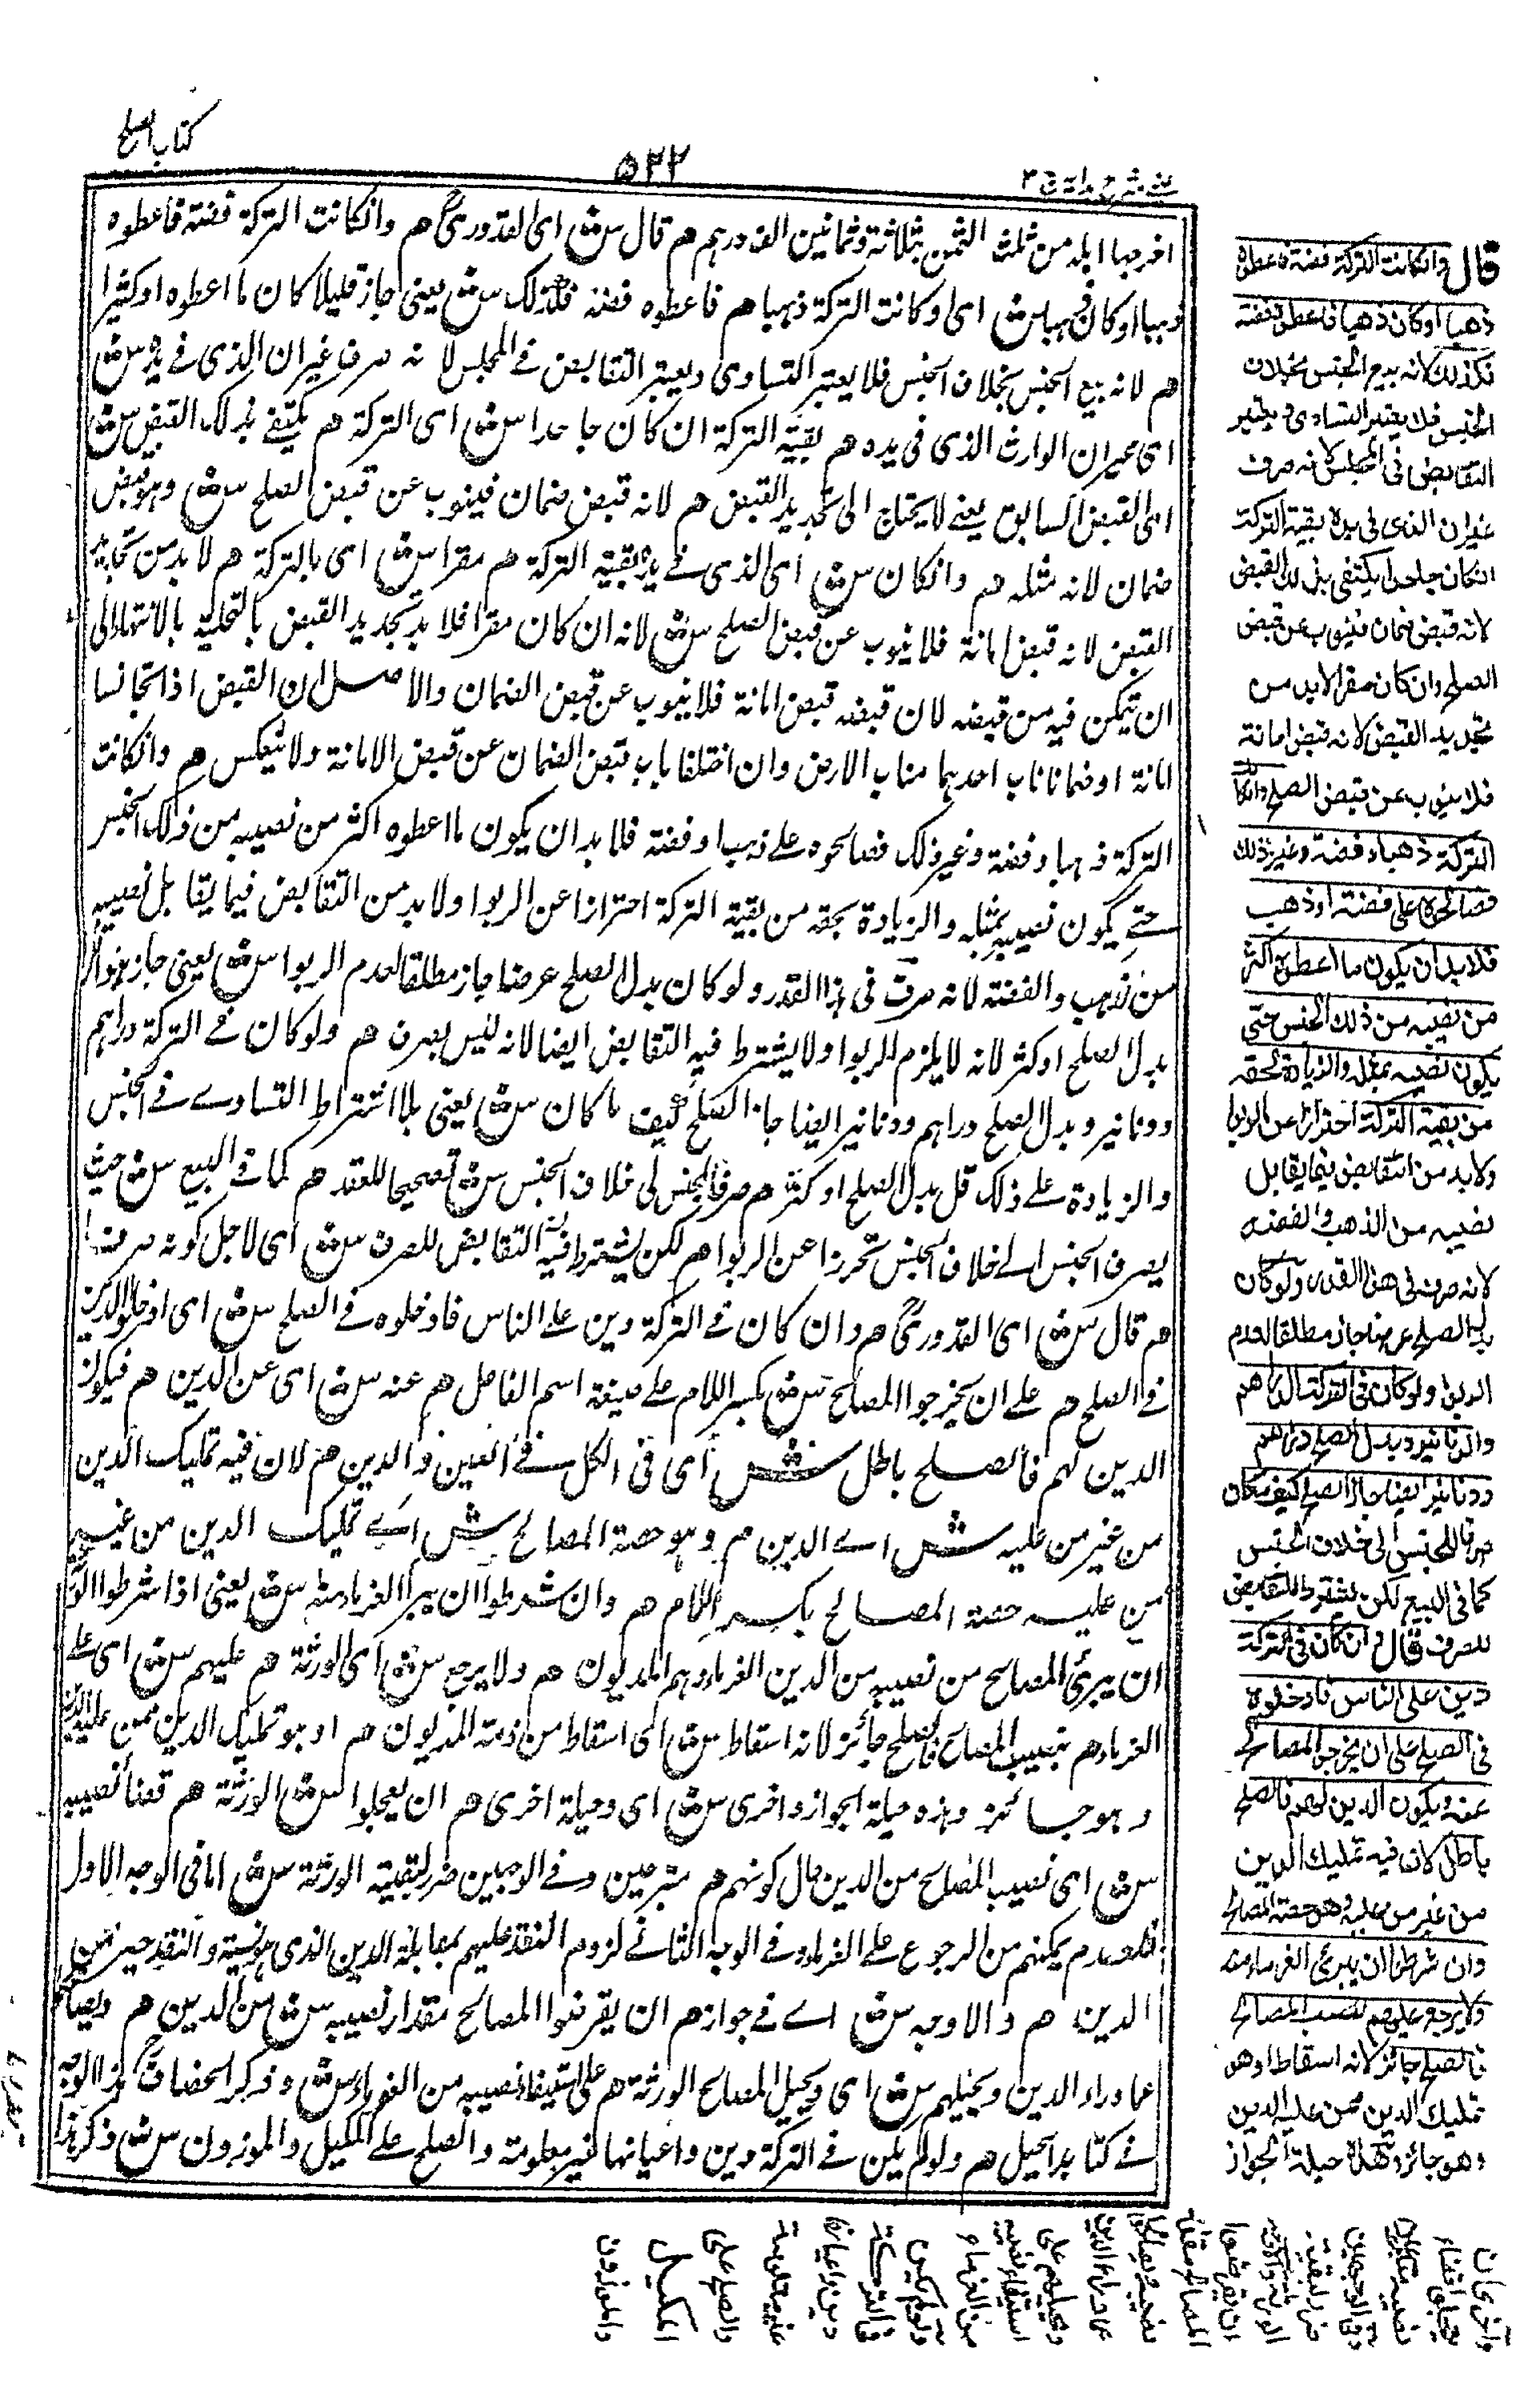 كتاب الصلح
٥٢٢
اخرجها ابله من ثلث الثمن بثلاثة وثمانين الف درهم هم قال سش اى القدورى هم وانكانت التركة فضة فاعطوه
ذهبا او كان ذهبا سش اى وكانت التركة ذهبا هم فاعطوه فضة فكذلك سش يعنى جاز قليلا كان ما اعطوه او كثيرا
هم لانه بيع الجنس بخلاف الجنس فلا يعتبر التساوى ويعتبر التقابض فى المجلس لانه صرف غير ان الذى فى يده سش
اى غير ان الوارث الذى فى يده هم بقية التركة ان كان جاحدا سش اى التركة هم يكتفى بذلك القبض سش
اى القبض السابق يعنى لا يحتاج الى تجديد القبض هم لانه قبض ضمان فينوب عن قبض الصلح سش وهو قبض
ضمان لانه مثله هم وانكان سش اى الذى فى يده بقية التركة هم مقرا سش اى بالتركة هم لا بد من تجديد
القبض لانه قبض امانة فلا ينوب عن قبض الصلح سش لانه ان كان مقرا فلا بد تجديد القبض بالتخلية بالانتهاء الى
ان يتمكن فيه من قبضه لان قبضه قبض امانة فلا ينوب عن قبض الضمان والاصل ان القبض اذا تجانسا
امانة او ضمانا ناب احدهما مناب الاخر وان اختلفا ناب قبض الضمان عن قبض الامانة ولا ينعكس هم وانكانت
التركة ذهبا وفضة وغير ذلك فصالحوه على ذهب او فضة فلا بد ان يكون ما اعطوه اكثر من نصيبه من ذلك الجنس
حتى يكون نصيبه بمثله والزيادة بحقه من بقية التركة احترازا عن الربوا ولا بد من التقابض فيما يقابل نصيبه
من ذهب والفضة لانه صرف فى هذا القدر ولو كان بدل الصلح عرضا جاز مطلقا لعدم الربوا سش يعنى جاز
بدل الصلح او كثر لانه لا يلزم الربوا ولا يشترط فيه التقابض ايضا لانه ليس بصرف هم ولو كان فى التركة دراهم
ودنانير وبدل الصلح دراهم ودنانير ايضا جاز الصلح كيف ما كان سش يعنى بلا اشتراط التساوى فى الجنس
والزيادة على ذلك قل بدل الصلح او كثر هم صرفا للجنس الى خلاف الجنس سش تصحيحا للعقد هم كما فى البيع سش حيث
يصرف الجنس الى خلاف الجنس تحرزا عن الربوا هم لكن يشترط فيه التقابض للصرف سش اى لاجل كونه صرفا
هم قال سش اى القدورى هم وان كان فى التركة دين على الناس فادخلوه فى الصلح سش اى ادخلوا الدين
فى الصلح هم على ان يخرجوا المصالح سش بكسر اللام على صيغة اسم الفاعل هم عنه سش اى عن الدين هم فيكون
الدين لهم فالصلح باطل سش اى فى الكل فى العين والدين هم لان فيه تمليك الدين
من غير من عليه سش اى الدين هم وهو حصة المصالح سش اى تمليك الدين من غير
من عليه حصة المصالح بكسر اللام هم وان شرطوا ان يبرأ الغرماء منه سش يعنى اذا شرطوا
ان يبرئ المصالح من نصيبه من الدين الغرماء وهم المديون هم ولا يرجع سش اى الورثة هم عليهم سش اى على
الغرماء هم بنصيب المصالح فالصلح جائز لانه اسقاط سش اى اسقاط من ذمة المديون هم او هو تمليك الدين ممن عليه الدين
وهو جائز وهذه حيلة الجواز واخرى سش اى وحيلة اخرى هم ان يعجلوا سش الورثة هم قضاء نصيبه
سش اى نصيب المصالح من الدين حال كونهم هم متبرعين وفى الوجهين ضرر لبقية الورثة سش اما فى الوجه الاول
فلعدم يمكنهم من الرجوع على الغرماء وفى الوجه الثانى لزوم النقد عليهم بمقابلة الدين الذى هو نسية والنقد خير من
الدين هم والاوجه سش اى فى جوازهم ان يقرضوا المصالح مقدار نصيبه سش من الدين هم ويصالحوا
عما وراء الدين ويحيلهم سش اى ويحيل المصالح الورثة هم على استيفاء نصيبه من الغرماء سش وذكر الخصاف هذا الوجه
فى كتاب الحيل هم ولو لم يكن فى التركة دين واعيانها غير معلومة والصلح على المكيل والموزون سش ذكر هذا
قال وانكانت التركة فضة فاعطوه
ذهبا او كان ذهبا فاعطوه فضة
فكذلك لانه بيع الجنس بخلاف
الجنس فلا يعتبر التساوى ويعتبر
التقابض فى المجلس لانه صرف
غيران الذى فى يده بقية التركة
انكان جاحدا يكتفى بذلك القبض
لانه قبض ضمان فينوب عن قبض
الصلح وان كان مقرا لابد من
تجديد القبض لانه قبض امانة
فلا ينوب عن قبض الصلح وانكانت
التركة ذهبا وفضة وغير ذلك
فصالحوه على فضة او ذهب
فلابد ان يكون ما اعطوه اكثر
من نصيبه من ذلك الجنس حتى
يكون نصيبه بمثله والزيادة بحقه
من بقية التركة احترازا عن الربوا
ولابد من التقابض فيما يقابل
نصيبه من الذهب والفضة
لانه صرف فى هذا القدر ولو كان
بدل الصلح عرضا جاز مطلقا لعدم
الربوا ولو كان فى التركة الدراهم
والدنانير وبدل الصلح دراهم
ودنانير ايضا جاز الصلح كيف ما كان
صرفا للجنس الى خلاف الجنس
كما فى البيع لكن يشترط التقابض
للصرف قال وان كان فى التركة
دين على الناس فادخلوه
فى الصلح على ان يخرجوا المصالح
عنه ويكون الدين لهم فالصلح
باطل لان فيه تمليك الدين
من غير من عليه وهو حصة المصالح
وان شرطوا ان يبرئ الغرماء منه
ولا يرجع عليهم بنصيب المصالح
فالصلح جائز لانه اسقاط او هو
تمليك الدين ممن عليه الدين
وهو جائز وهذه حيلة الجواز
واخرى ان
يعجلوا قضاء
نصيبه متبرعين
وفى الوجهين
ضرر لبقية
الورثة والاوجه
ان يقرضوا
المصالح مقدار
نصيبه ويصالحوا
عما وراء الدين
ويحيلهم على
استيفاء نصيبه
من الغرماء
ولو لم يكن
فى التركة
دين واعيانها
غير معلومة
والصلح على
المكيل
والموزون